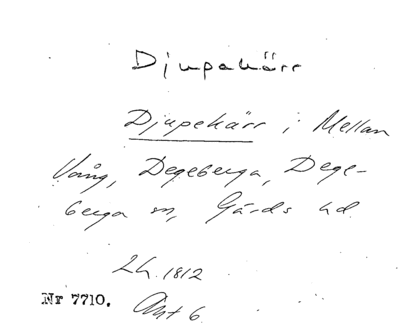 Djupekärr
Djupekärr i Mellan
Vång, Degeberga, Dege-
berga sn, Gärds hd
Lh. 1812
Nr 7710. Akt 6